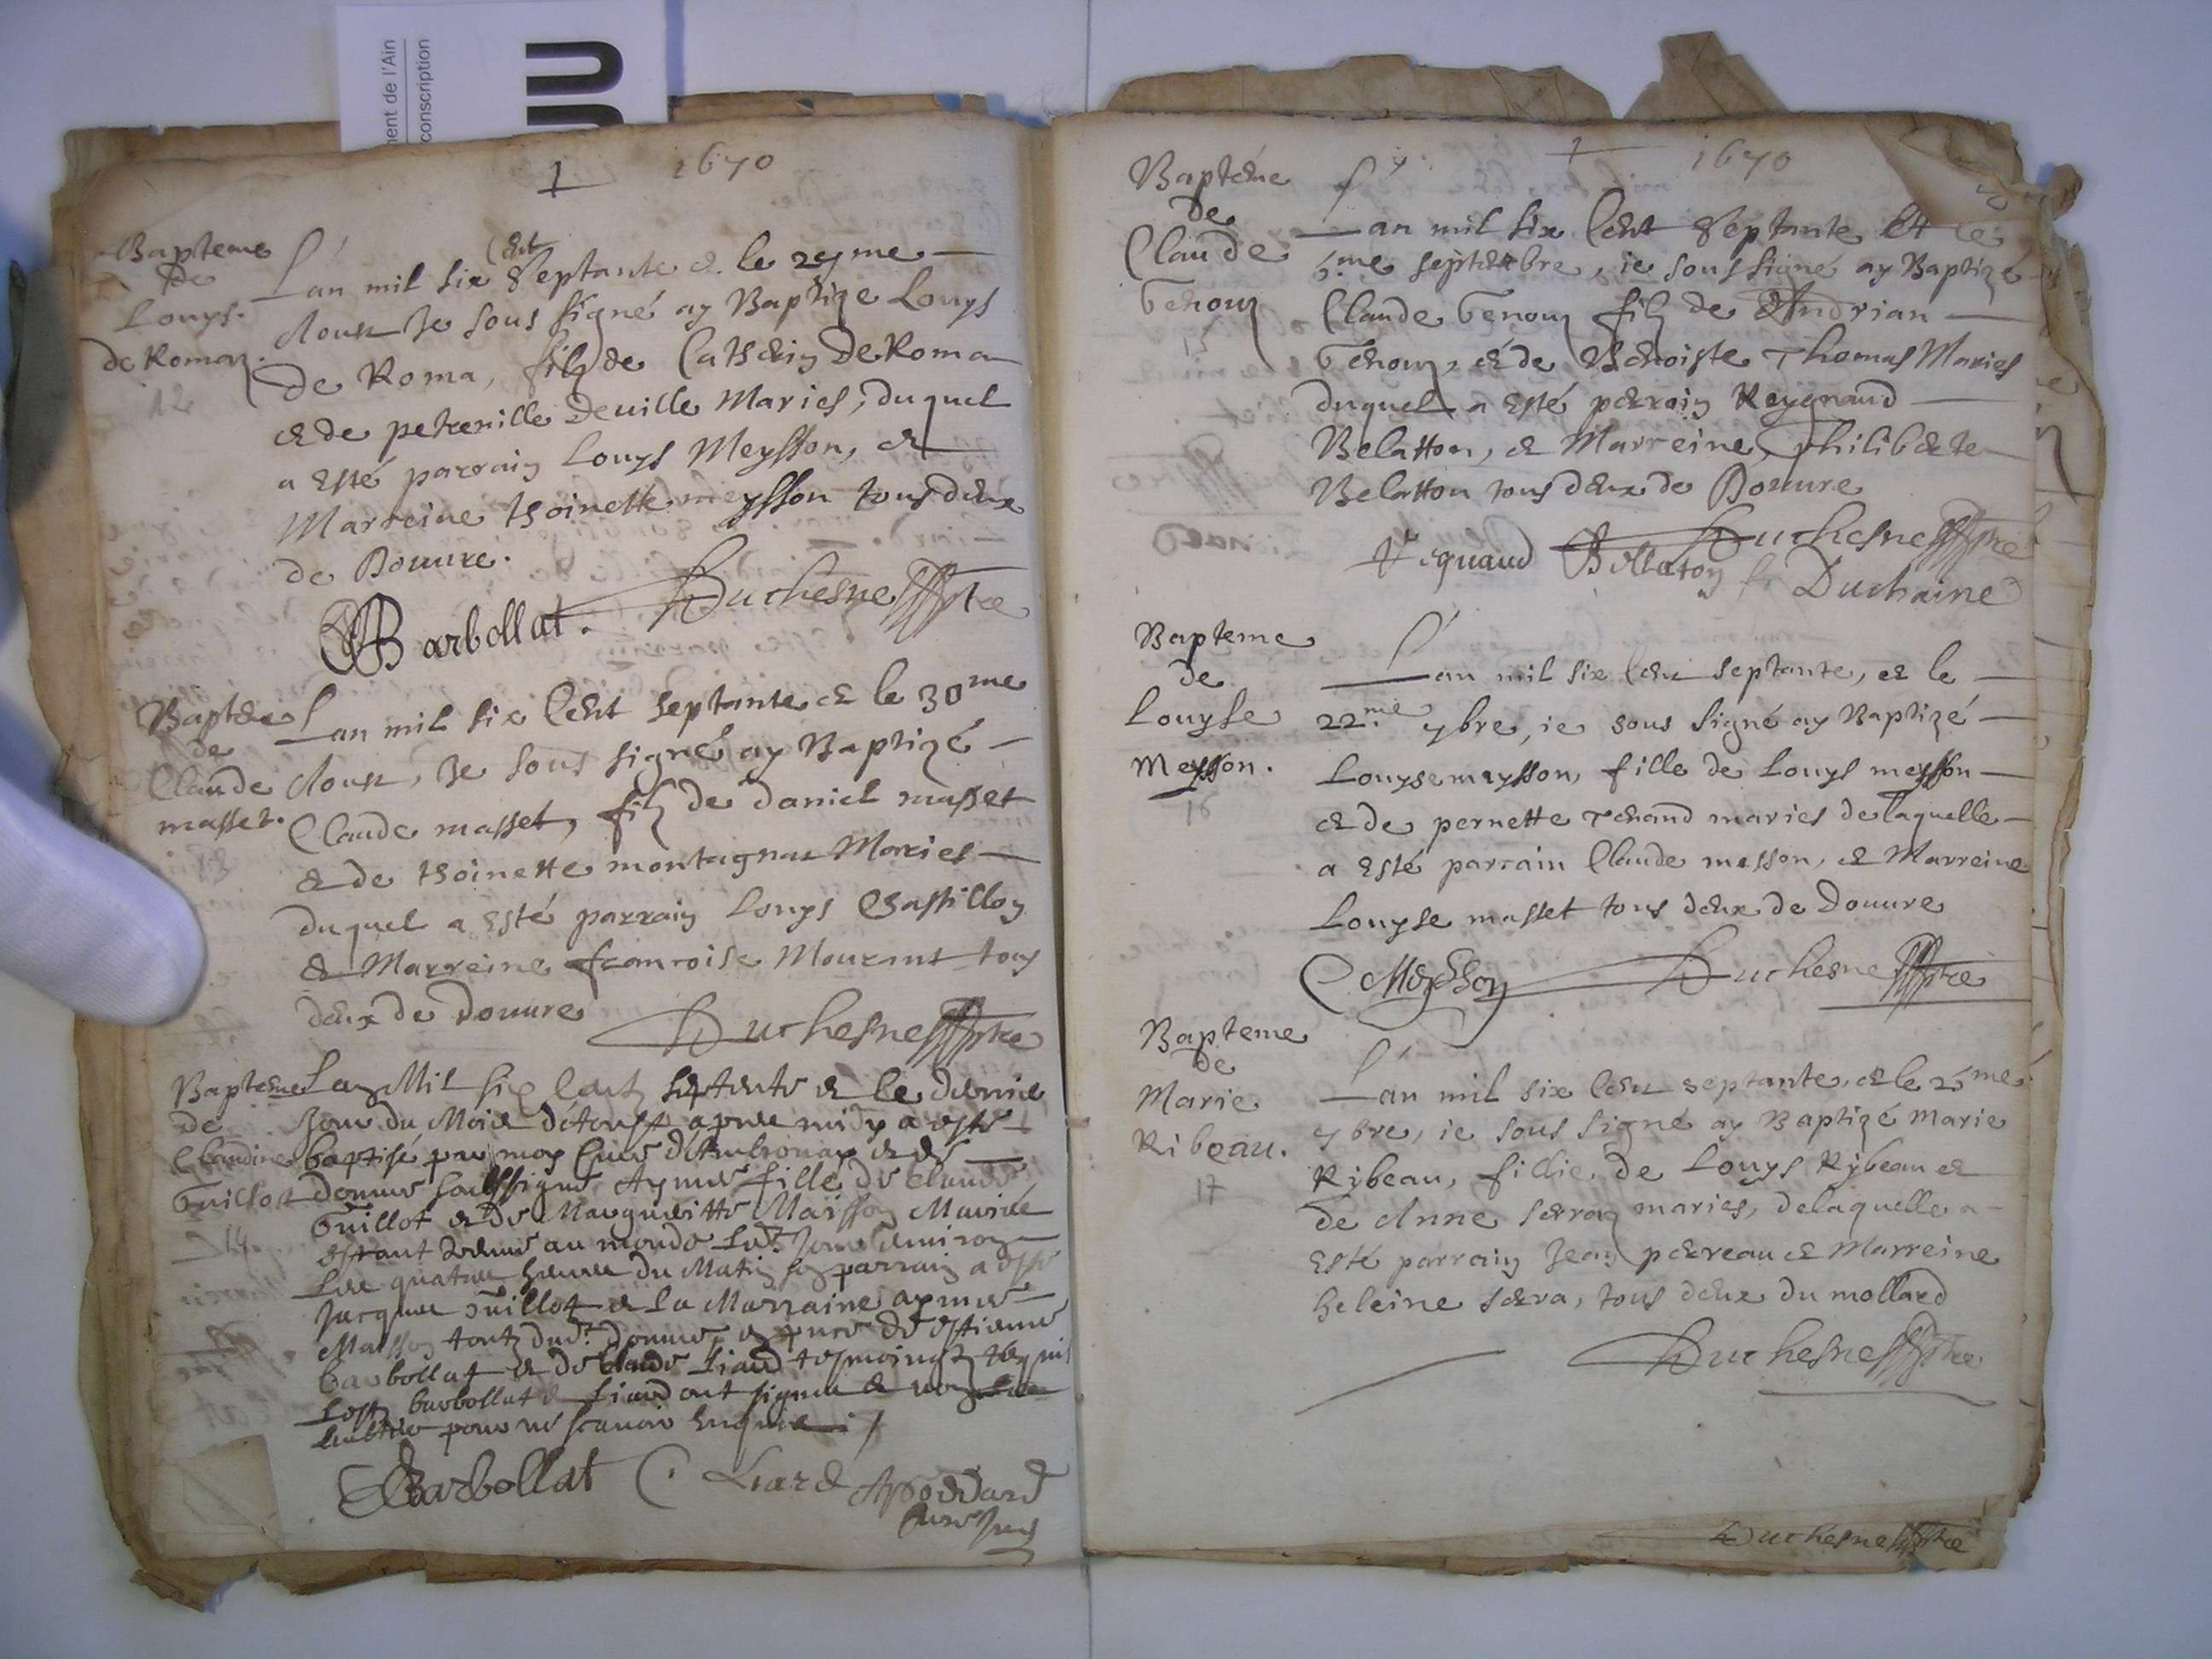 ent de l'Ain
conscription
1670
Bapteme
de
Louys
de Roman.
12
Lan mil six cent septante & le 29me
Aoust Je sous signé ay Baptize Louys
de Roma, filz de Cathelin De Roma
& de petrenille Deuille Maries, duquel
a esté parrain Louys Meysson, &
Marreine thoinette meysson tous deux
de Douure.
Duchesne ptre
Barbollat.
Bapteme
de
Claude
masset.
13
Lan mil six Cent septante & le 30me
Aoust, Je sous signé ay Baptizé
Claude masset, filz de Daniel masset
& de thoinette montagnat Maries
duquel a esté parrain Louys Chastillon
& Marreine francoise Mourant tous
deux de Douure
Duchesne ptre
Bapteme
de
Claudine
Guillot
14
Lan Mil six Centz septente & le dernier
Jour du Mois d'Aoust apres midy a esté
baptisé par moy Curé d'Ambronay & de
Douure soubssigné Aymée fille de Claude
Guillot & de Margueritte Maisson Mariés
estant venue au monde led. Jour environ
les quatre heures du Matin son parrain a esté
Jacques Guillot & la Marraine aymée
Maisson toutz dud. Douure, en pnce de estienne
barbollat & de Claude Liard tesmoingz requis
lesq. barbollat & Liard ont signés & non les
aultres pour ne scavoir enquis
Barbollat C. Liard Goddard
Curé
1670
Bapteme
de
Claude
Genoux
Lan mil six Cent septante et le
6me septembre, ie sous signé ay Baptizé
Claude Genoux filz de Andrian
Genoux, & de Benoiste Thomas Maries
duquel a esté perrain Reygnaud
Belatton, & Marreine, philiberte
Belatton tous deux de Douure
Duchesne ptre
Reignaud Bellaton Duchaine
Bapteme
de
Louyse
Meysson.
16
Lan mil six Cent septante, & le
22me 7bre, ie sous signé ay Baptizé
Louyse meysson, fille de Louys meysson
& de pernette Tenand maries delaquelle
a esté parrain Claude messon, & Marreine
Louyse masset tous deux de Douure
C. Meysson Duchesne ptre
Bapteme
de
Marie
Ribeau.
17
Lan mil six Cent septante, & le 25me
7bre, ie sous signé ay Baptizé Marie
Ribeau, fillie de Louys Rybeau &
de Anne serra maries, delaquelle a
esté parrain Jean pereau & Marreine
heleine serra, tous deux du mollard
Duchesne ptre
Duchesne ptre